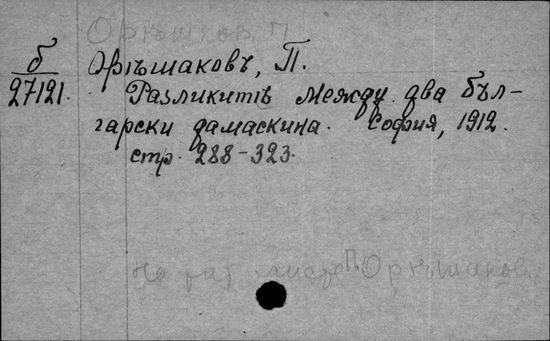 Орѣшков, П.
б
27121.
Орѣшаковъ, П.
Разликитѣ между два бъл-
гарски дамаскина. София, 1912.
стр. 288-323.
На тит. листе П. Орѣшаков.